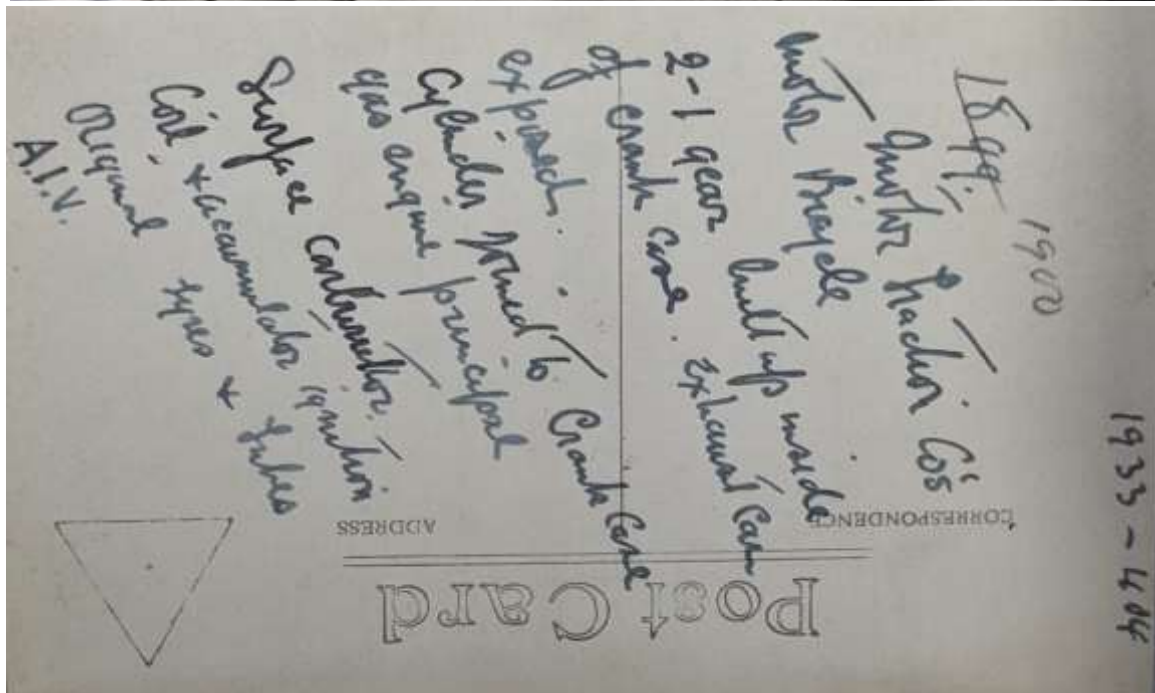 1900
1899.
Motor Traction Co's
Motor Bicycle
2-1 gear built up inside
of crank case. Exhaust Cam
exposed.
Cylinder joined to Crank Case
gas engine principal
Surface Carburettor.
Coil + accumulator ignition
Original tyres + tubes
A.I.V.
1933-404
CORRESPONDENCE
ADDRESS
Post Card